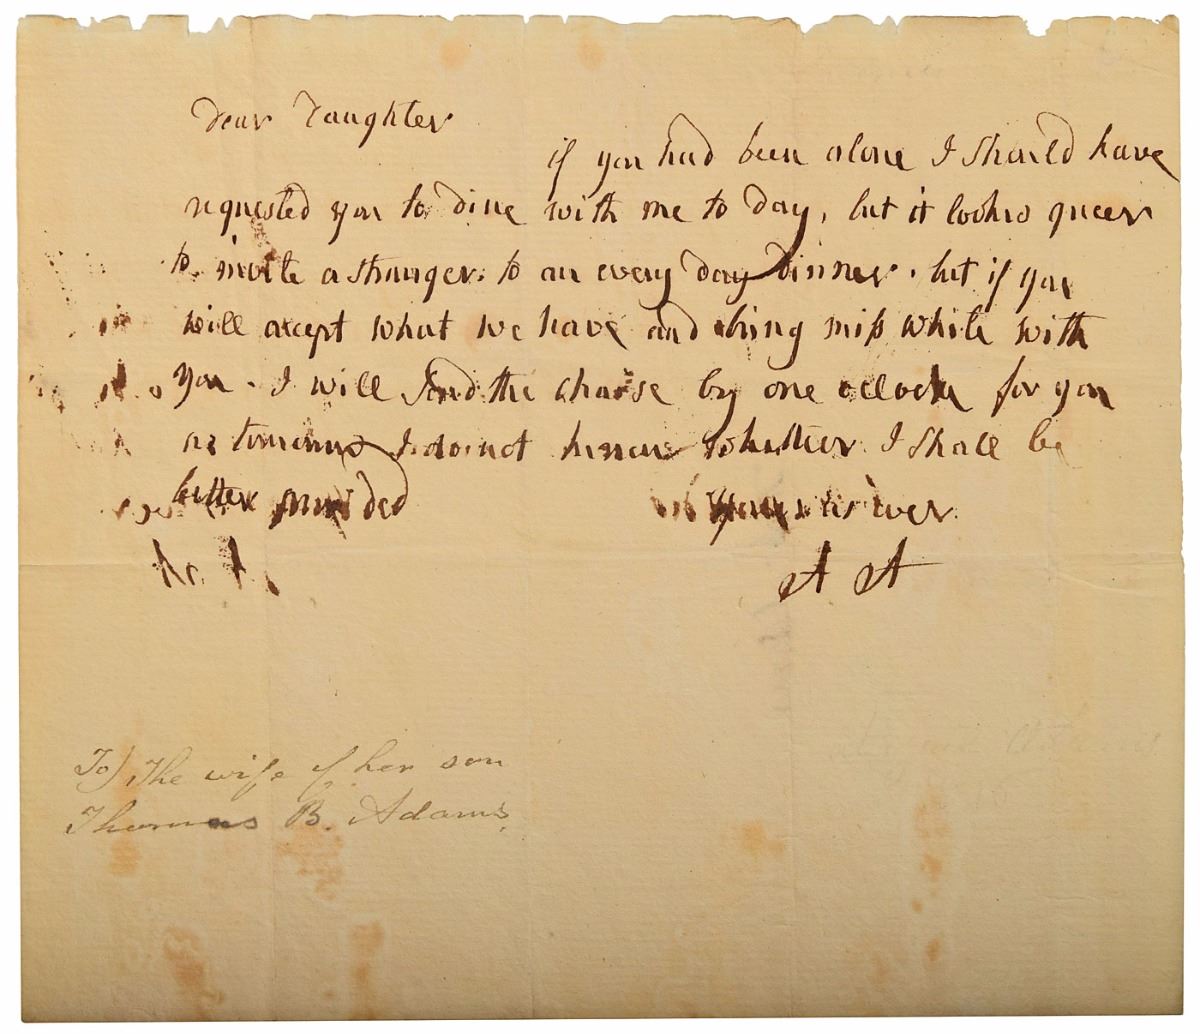 Dear Daughter
if you had been alone I should have
requested you to dine with me to day, but it looks queer
to invite a stranger to an every day Dinner. but if you
will accept what we have and bring miss white with
you. I will send the chaise by one oclock for you
as tomorrow I do not know whether I shall be
better provided
Yours as ever
A A
To) The wife of her son
Thomas B. Adams.